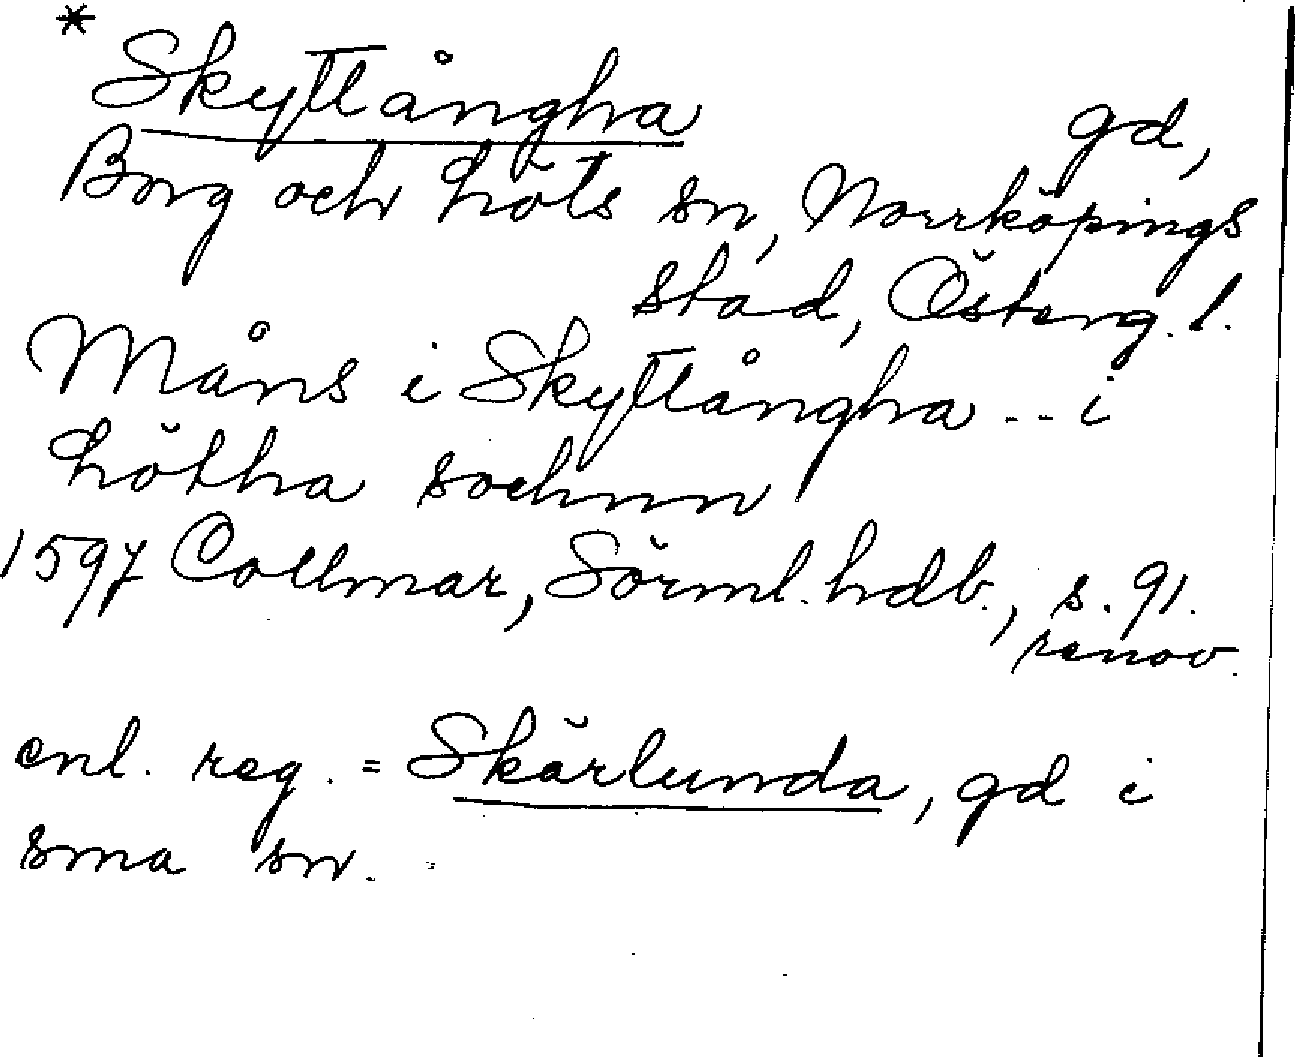 * Skyttångha
gd,
Borg och Löts sn, Norrköpings
stad, Österg. l.
Måns i Skyttångha - - i
Lötha sochnn
1597 Collmar, Sörml. hdb., s. 91.
renov.
enl. reg. = Skärlunda, gd i
sma sn.